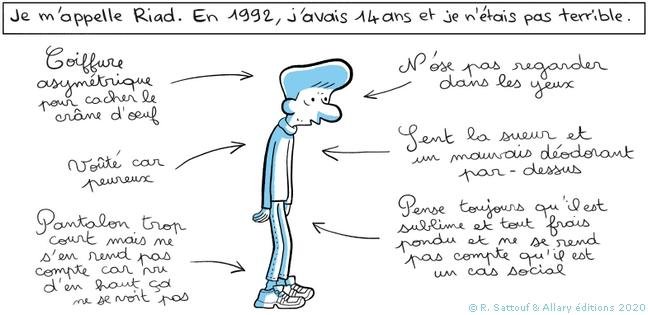 Je m'appelle Riad. En 1992, j'avais 14 ans et je n'étais pas terrible.
Coiffure
asymétrique
pour cacher le
crâne d'oeuf
Voûté car
peureux
Pantalon trop
court mais ne
s'en rend pas
compte car vu
d'en haut ça
ne se voit pas
N'ose pas regarder
dans les yeux
Sent la sueur et
un mauvais déodorant
par-dessus
Pense toujours qu'il est
sublime et tout frais
pondu et ne se rend
pas compte qu'il est
un cas social
© R. Sattouf & Allary éditions 2020